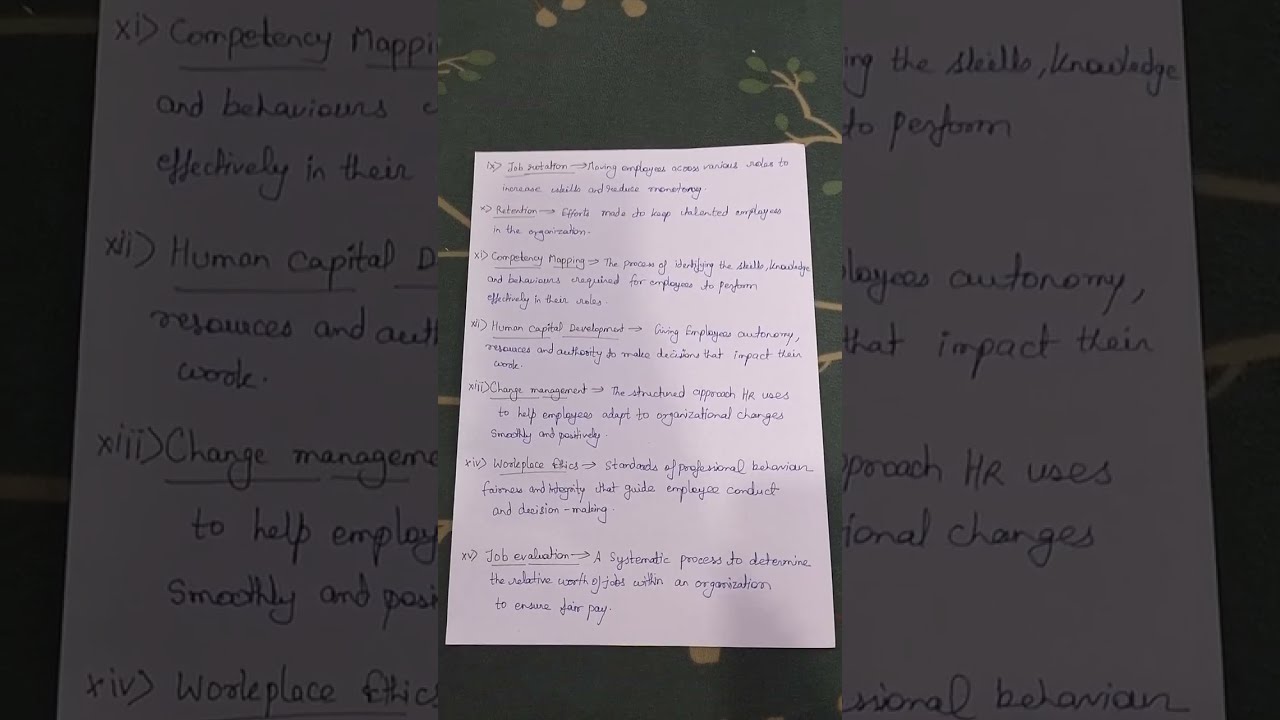 ix) Job rotation → Moving employees across various roles to
increase skills and reduce monotony.
x) Retention → Efforts made to keep talented employees
in the organization.
xi) Competency Mapping → The process of identifying the skills, knowledge
and behaviours required for employees to perform
effectively in their roles.
xii) Human Capital Development → Giving Employees autonomy,
resources and authority to make decisions that impact their
work.
xiii) Change management → The structured approach HR uses
to help employees adapt to organizational changes
Smoothly and positively.
xiv) Workplace Ethics → Standards of professional behaviour
fairness and integrity that guide employee conduct
and decision-making.
xv) Job evaluation → A Systematic process to determine
the relative worth of jobs within an organization
to ensure fair pay.